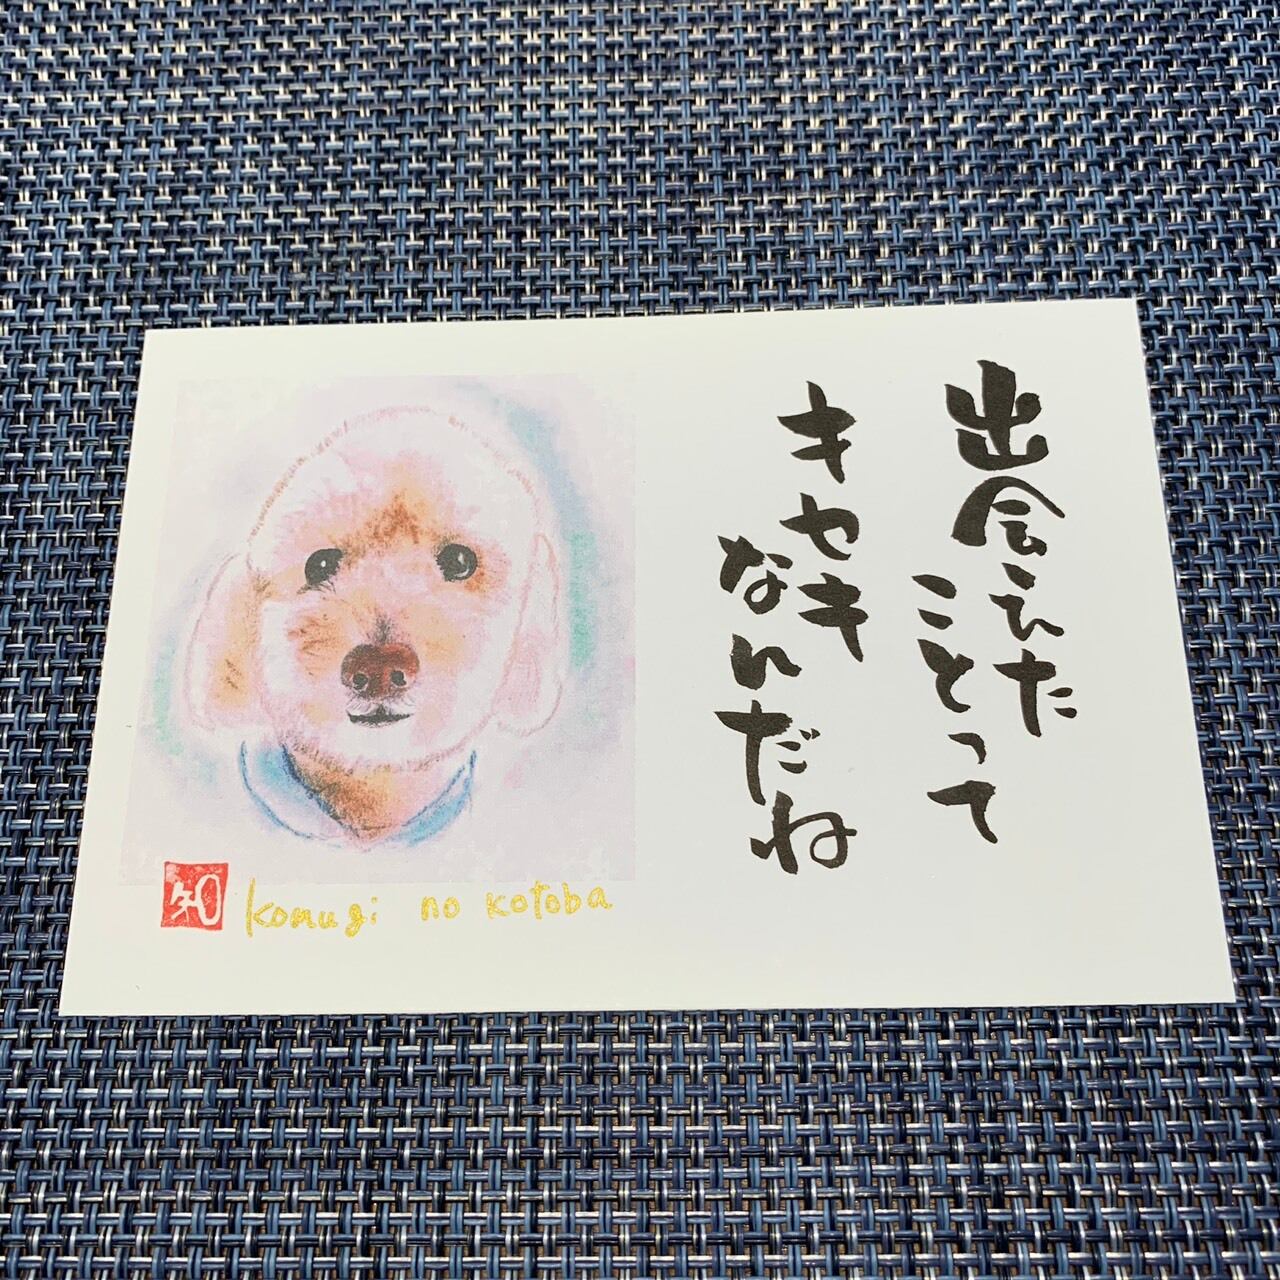 出会えた
ことって
キセキ
なんだね
知
komugi no kotoba